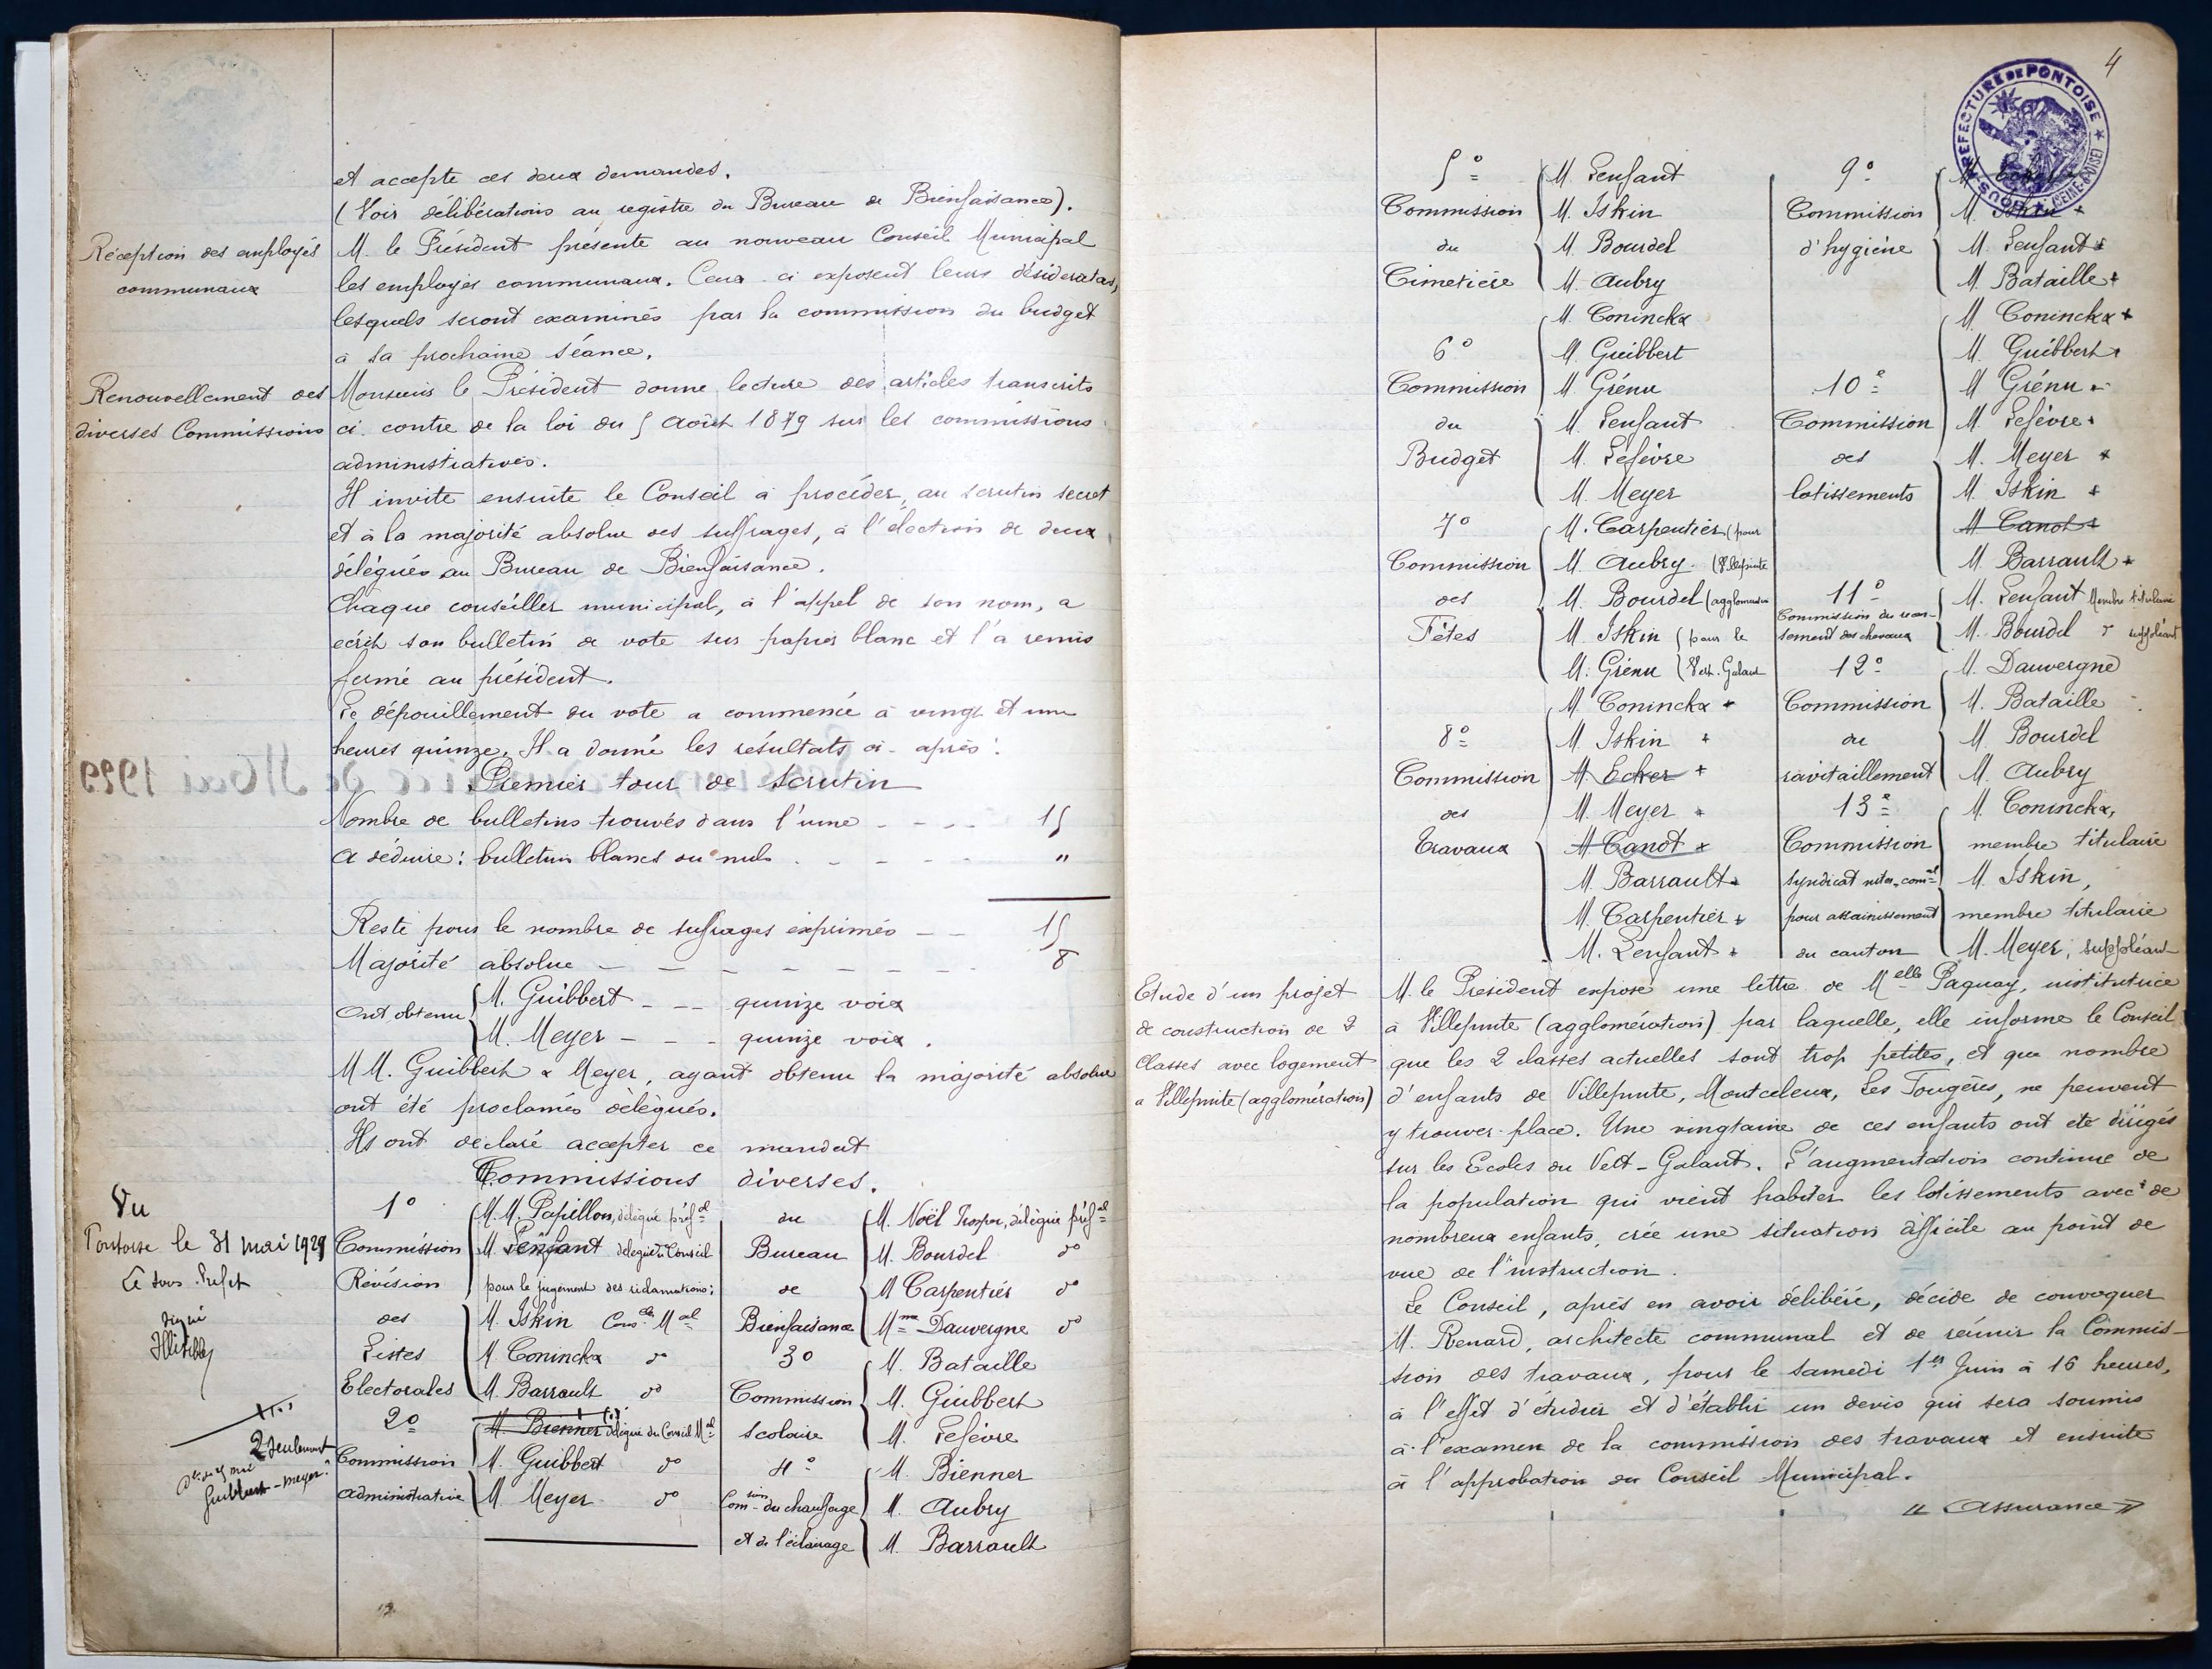 et accepte ces deux demandes.
(Voir délibérations au registre du Bureau de Bienfaisance).
Réception des employés
communaux
M. le Président présente au nouveau Conseil Municipal
les employés communaux. Ceux-ci exposent leurs désideratas,
lesquels seront examinés par la commission du budget
à sa prochaine séance.
Renouvellement des
diverses Commissions
Monsieur le Président donne lecture des articles transcrits
ci-contre de la loi du 5 Août 1879 sur les commissions
administratives.
Il invite ensuite le Conseil à procéder, au scrutin secret
et à la majorité absolue des suffrages, à l'élection de deux
délégués au Bureau de Bienfaisance.
Chaque conseiller municipal, à l'appel de son nom, a
écrit son bulletin de vote sur papier blanc et l'a remis
fermé au président.
Le dépouillement du vote a commencé à vingt et une
heures quinze. Il a donné les résultats ci-après :
Premier tour de Scrutin
Nombre de bulletins trouvés dans l'urne - - - - 15
A déduire : bulletins blancs ou nuls - - - - "
Reste pour le nombre de suffrages exprimés - - 15
Majorité absolue - - - - - - - - 8
Ont obtenu
M. Guibbert - - - quinze voix
M. Meyer - - - quinze voix.
MM. Guibbert & Meyer, ayant obtenu la majorité absolue
ont été proclamés délégués.
Ils ont déclaré accepter ce mandat
Commissions diverses.
1°
Commission
Révision
des
Listes
Electorales
M.M. Papillon, délégué préfal
M. Lenfant délégué du Conseil
pour le jugement des réclamations :
M. Iskin Conser Mal
M. Coninckx do
M. Barrault do
2°
Commission
administrative
M. Bienner délégué du Conseil Mal
M. Guibbert do
M. Meyer do
du
Bureau
de
Bienfaisance
M. Noël Prosper, délégué préfal
M. Bourdel do
M Carpentier do
Mme Dauvergne do
3°
Commission
scolaire
M. Bataille
M. Guibbert
M. Lefèvre
4°
Comsion du chauffage
et de l'éclairage
M. Bienner
M. Aubry
M. Barrault
Vu
Pontoise le 31 mai 1929
Le Sous-Préfet
signé
2 seulement
Guibbert - Meyer
4
SOUS-PREFECTURE DE PONTOISE
(SEINE-&-OISE)
5°
Commission
du
Cimetière
M. Lenfant
M. Iskin
M. Bourdel
M. Aubry
6°
Commission
du
Budget
M. Coninckx
M. Guibbert
M. Grénu
M. Lenfant
M. Lefèvre
M. Meyer
7°
Commission
des
Fêtes
M. Carpentier (pour
M. Aubry (Villepinte
M. Bourdel (agglomération
M. Iskin (pour le
M. Grénu (Vert-Galant
8°
Commission
des
Travaux
M. Coninckx +
M. Iskin +
M. Ecker +
M. Meyer +
M. Canot +
M. Barrault +
M. Carpentier +
M. Lenfant +
9°
Commission
d'hygiène
M. Ecker +
M. Iskin +
M. Lenfant +
M. Bataille +
10e
Commission
des
lotissements
M. Coninckx +
M. Guibbert +
M Grénu +
M. Lefèvre +
M. Meyer +
M. Iskin +
M Canot +
M. Barrault +
11°
Commission du recen-
sement des chevaux
M. Lenfant Membre titulaire
M. Bourdel do suppléant
12°
Commission
de
ravitaillement
M. Dauvergne
M. Bataille
M. Bourdel
M. Aubry
13e
Commission
syndicat inter-comal
pour assainissement
du canton
M. Coninckx,
membre titulaire
M. Iskin,
membre titulaire
M. Meyer, suppléant
Etude d'un projet
de construction de 2
Classes avec logement
à Villepinte (agglomération)
M. le Président expose une lettre de Melle Paquay, institutrice
à Villepinte (agglomération) par laquelle, elle informe le Conseil
que les 2 classes actuelles sont trop petites, et que nombre
d'enfants de Villepinte, Montceleux, Les Fougères, ne peuvent
y trouver place. Une vingtaine de ces enfants ont été dirigés
sur les Ecoles du Vert-Galant. L'augmentation continue de
la population qui vient habiter les lotissements avec de
nombreux enfants, crée une situation difficile au point de
vue de l'instruction.
Le Conseil, après en avoir délibéré, décide de convoquer
M. Renard, architecte communal et de réunir la Commis-
sion des travaux, pour le samedi 1er Juin à 16 heures,
à l'effet d'étudier et d'établir un devis qui sera soumis
à l'examen de la commission des travaux et ensuite
à l'approbation du Conseil Municipal.
« Assurance »